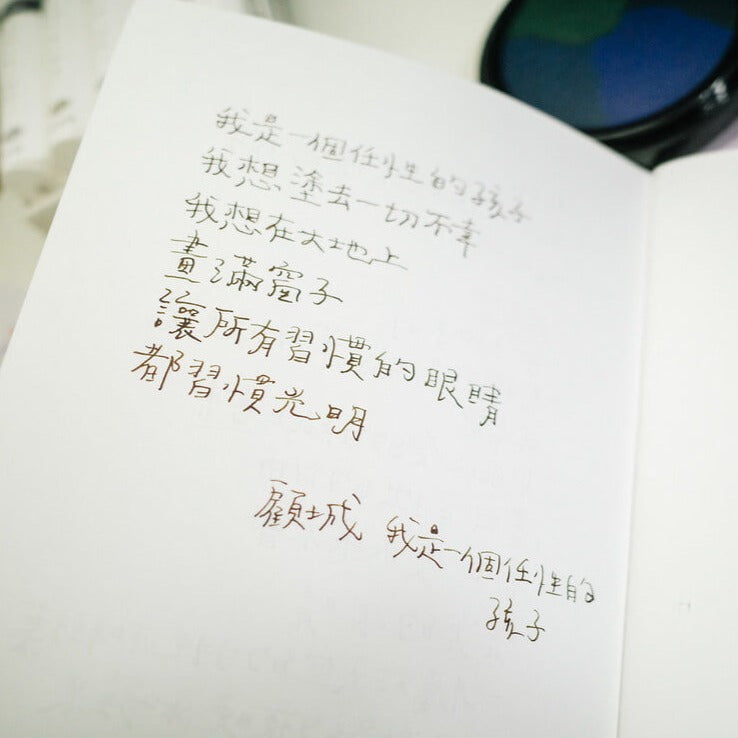 我是一個任性的孩子
我想塗去一切不幸
我想在大地上
畫滿窗子
讓所有習慣的眼睛
都習慣光明
顧城 我是一個任性的
孩子